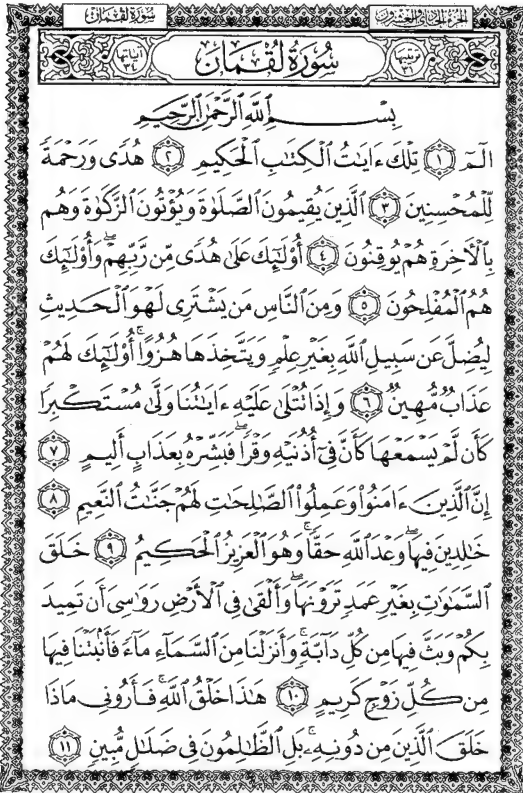 سورة لقمان
الجزء الحادي والعشرون
ترتيبها ٣١
سُورَةُ لُقْمَانَ
آياتها ٣٤
بِسْمِ اللَّهِ الرَّحْمَٰنِ الرَّحِيمِ
الٓمٓ ١ تِلْكَ ءَايَٰتُ ٱلْكِتَٰبِ ٱلْحَكِيمِ ٢ هُدًى وَرَحْمَةً
لِّلْمُحْسِنِينَ ٣ ٱلَّذِينَ يُقِيمُونَ ٱلصَّلَوٰةَ وَيُؤْتُونَ ٱلزَّكَوٰةَ وَهُم
بِٱلْأَخِرَةِ هُمْ يُوقِنُونَ ٤ أُو۟لَٰٓئِكَ عَلَىٰ هُدًى مِّن رَّبِّهِمْ ۖ وَأُو۟لَٰٓئِكَ
هُمُ ٱلْمُفْلِحُونَ ٥ وَمِنَ ٱلنَّاسِ مَن يَشْتَرِى لَهْوَ ٱلْحَدِيثِ
لِيُضِلَّ عَن سَبِيلِ ٱللَّهِ بِغَيْرِ عِلْمٍ وَيَتَّخِذَهَا هُزُوًا ۚ أُو۟لَٰٓئِكَ لَهُمْ
عَذَابٌ مُّهِينٌ ٦ وَإِذَا تُتْلَىٰ عَلَيْهِ ءَايَٰتُنَا وَلَّىٰ مُسْتَكْبِرًا
كَأَن لَّمْ يَسْمَعْهَا كَأَنَّ فِىٓ أُذُنَيْهِ وَقْرًا ۖ فَبَشِّرْهُ بِعَذَابٍ أَلِيمٍ ٧
إِنَّ ٱلَّذِينَ ءَامَنُوا۟ وَعَمِلُوا۟ ٱلصَّٰلِحَٰتِ لَهُمْ جَنَّٰتُ ٱلنَّعِيمِ ٨
خَٰلِدِينَ فِيهَا ۖ وَعْدَ ٱللَّهِ حَقًّا ۚ وَهُوَ ٱلْعَزِيزُ ٱلْحَكِيمُ ٩ خَلَقَ
ٱلسَّمَٰوَٰتِ بِغَيْرِ عَمَدٍ تَرَوْنَهَا ۖ وَأَلْقَىٰ فِى ٱلْأَرْضِ رَوَٰسِىَ أَن تَمِيدَ
بِكُمْ وَبَثَّ فِيهَا مِن كُلِّ دَآبَّةٍ ۚ وَأَنزَلْنَا مِنَ ٱلسَّمَآءِ مَآءً فَأَنۢبَتْنَا فِيهَا
مِن كُلِّ زَوْجٍ كَرِيمٍ ١٠ هَٰذَا خَلْقُ ٱللَّهِ فَأَرُونِى مَاذَا
خَلَقَ ٱلَّذِينَ مِن دُونِهِۦ ۚ بَلِ ٱلظَّٰلِمُونَ فِى ضَلَٰلٍ مُّبِينٍ ١١